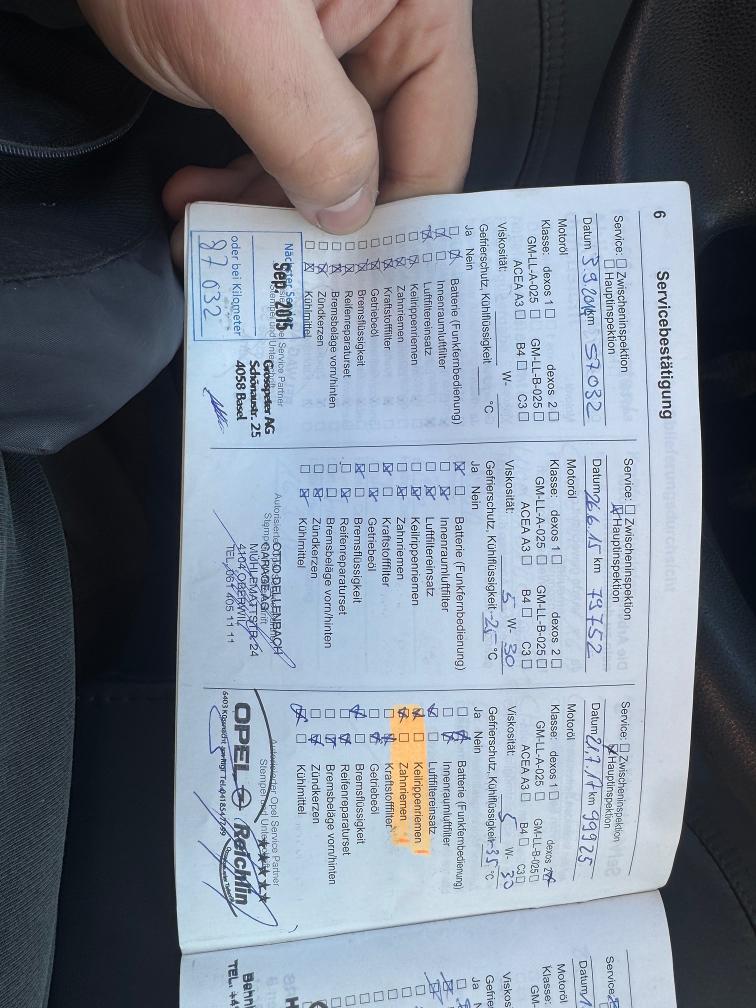 6
Servicebestätigung
Service: Zwischeninspektion
Hauptinspektion
Datum 3.9.2014 km 57032
Motoröl
Klasse: dexos 1 dexos 2
GM-LL-A-025 GM-LL-B-025
ACEA A3 B4 C3
Viskosität: W-
Gefrierschutz, Kühlflüssigkeit °C
Ja Nein
Batterie (Funkfernbedienung)
Innenraumluftfilter
Luftfiltereinsatz
Keilrippenriemen
Zahnriemen
Kraftstofffilter
Getriebeöl
Bremsflüssigkeit
Reifenreparaturset
Bremsbeläge vorn/hinten
Zündkerzen
Kühlmittel
Sep. 2015
oder bei Kilometer
87 032
Grosspeter AG
Schönaustr. 25
4058 Basel
Service: Zwischeninspektion
Hauptinspektion
Datum 26.6.15 km 79752
Motoröl
Klasse: dexos 1 dexos 2
GM-LL-A-025 GM-LL-B-025
ACEA A3 B4 C3
Viskosität: 5 W- 30
Gefrierschutz, Kühlflüssigkeit -25 °C
Ja Nein
Batterie (Funkfernbedienung)
Innenraumluftfilter
Luftfiltereinsatz
Keilrippenriemen
Zahnriemen
Kraftstofffilter
Getriebeöl
Bremsflüssigkeit
Reifenreparaturset
Bremsbeläge vorn/hinten
Zündkerzen
Kühlmittel
OTTO DELLENBACH
GARAGE AG
MÜHLEMATTSTR. 24
4104 OBERWIL
TEL. 061 405 11 11
Service: Zwischeninspektion
Hauptinspektion
Datum 21.7.17 km 99925
Motoröl
Klasse: dexos 1 dexos 2
GM-LL-A-025 GM-LL-B-025
ACEA A3 B4 C3
Viskosität: 5 W- 30
Gefrierschutz, Kühlflüssigkeit -35 °C
Ja Nein
Batterie (Funkfernbedienung)
Innenraumluftfilter
Luftfiltereinsatz
Keilrippenriemen
Zahnriemen
Kraftstofffilter
Getriebeöl
Bremsflüssigkeit
Reifenreparaturset
Bremsbeläge vorn/hinten
Zündkerzen
Kühlmittel
Autorisierter Opel Service Partner
OPEL Reichlin